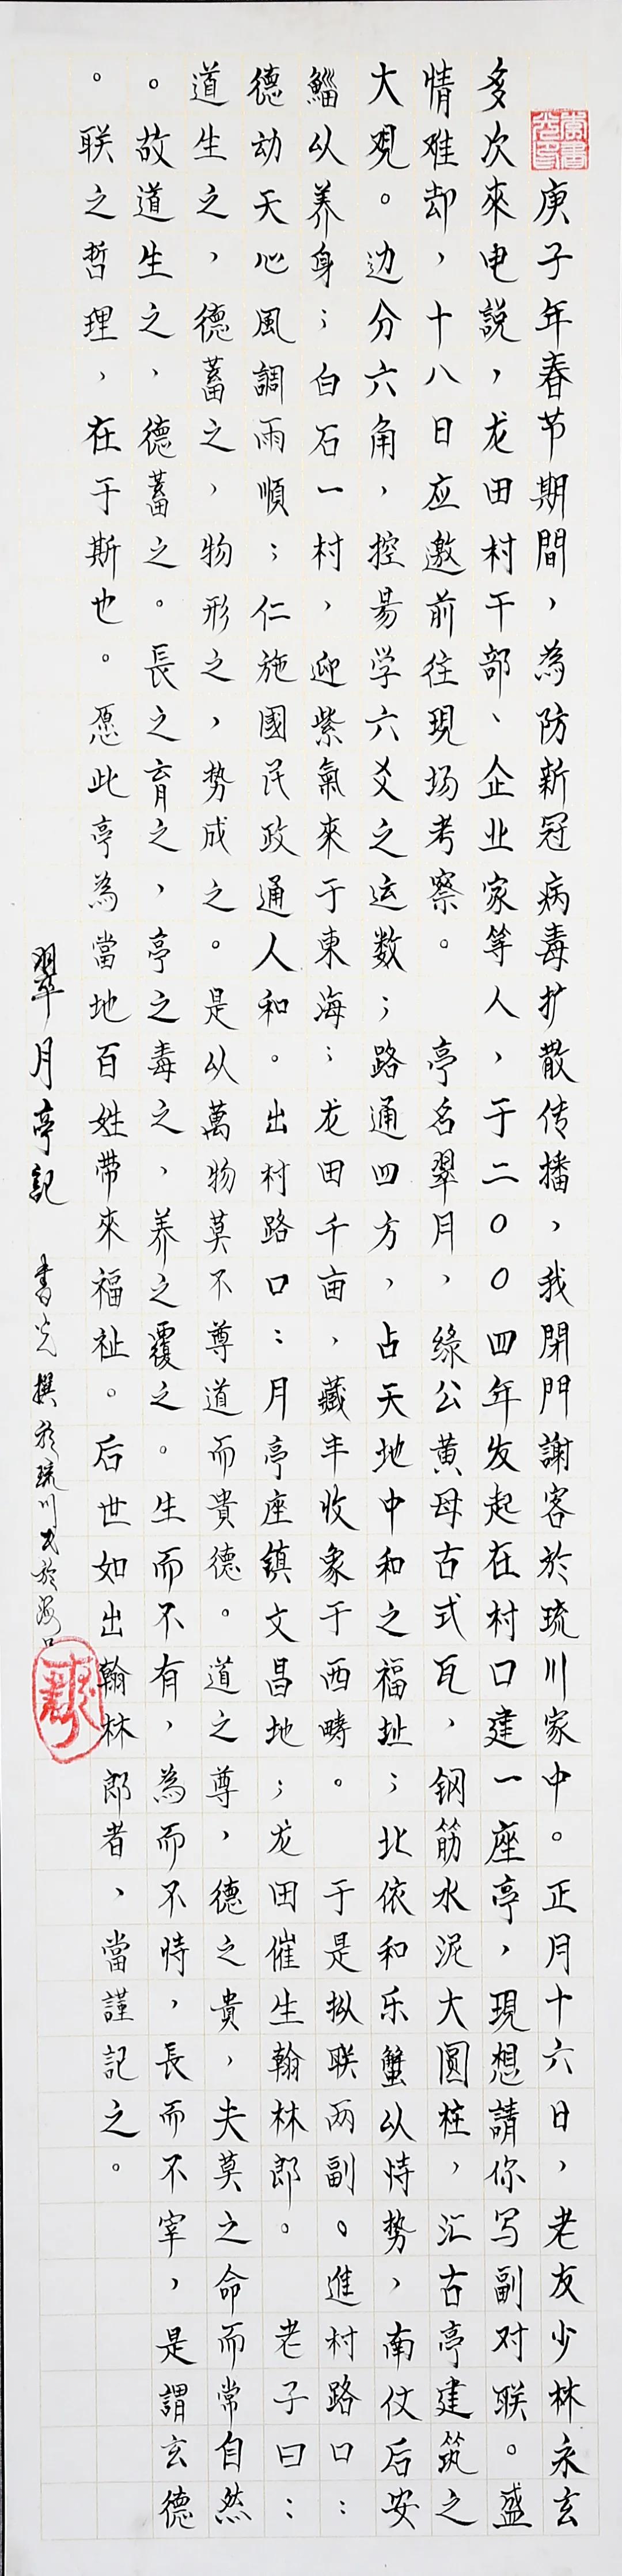 庚子年春节期間，為防新冠病毒扩散传播，我閉門謝客於琉川家中。正月十六日，老友少林永玄
多次來电説，龙田村干部、企业家等人，于二〇〇四年发起在村口建一座亭，現想請你写副对联。盛
情难却，十八日应邀前往現场考察。 亭名翠月，緣公黄母古式瓦，钢筋水泥大圆柱，汇古亭建筑之
大观。边分六角，控昜学六爻之运数；路通四方，占天地中和之福址；北依和乐蟹以恃势，南仗后安
鯔以养身；白石一村，迎紫氣來于東海；龙田千亩，藏丰收象于西畴。 于是拟联两副。進村路口：
德动天心風調雨順；仁施國民政通人和。出村路口：月亭座鎮文昌地；龙田催生翰林郎。 老子曰：
道生之，德蓄之，物形之，势成之。是以萬物莫不尊道而貴德。道之尊，德之貴，夫莫之命而常自然
。故道生之，德蓄之。長之育之，亭之毒之，养之覆之。生而不有，為而不恃，長而不宰，是謂玄德
。联之哲理，在于斯也。愿此亭為當地百姓带來福祉。后世如出翰林郎者，當謹記之。
翠月亭記 書光撰於琉川书於海口